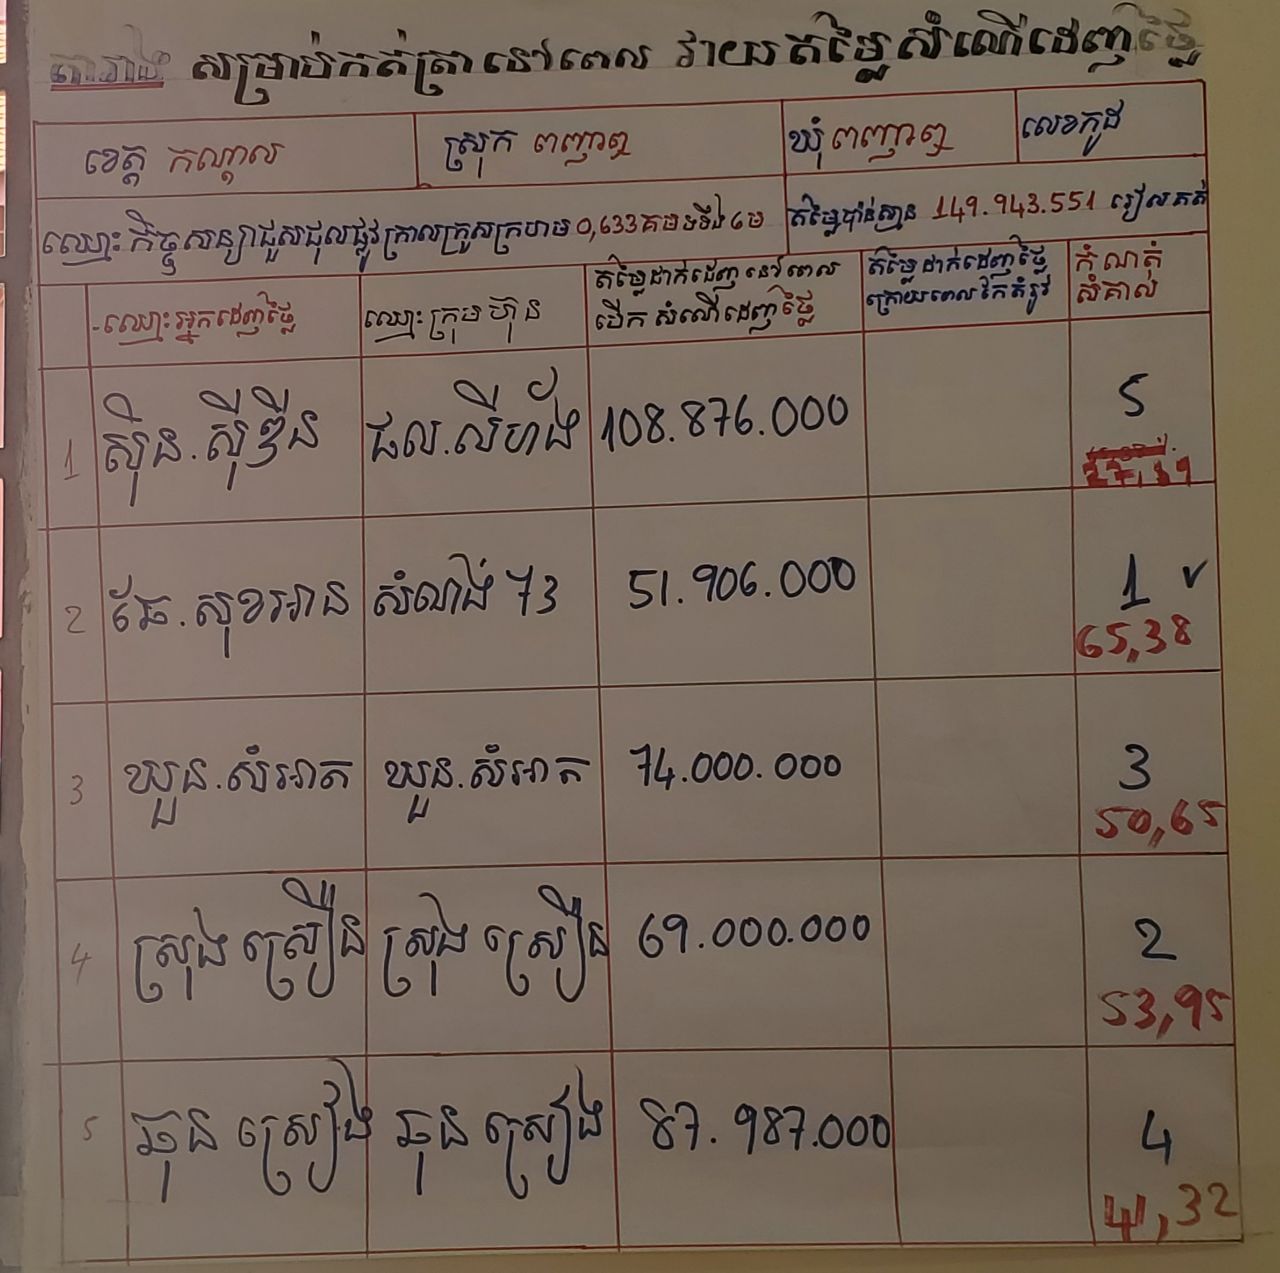 តារាង សម្រាប់កត់ត្រានៅពេល វាយតម្លៃសំណើដេញថ្លៃ
ខេត្ត កណ្តាល ស្រុក ពញាឮ ឃុំ ពញាឮ លេខកូដ
ឈ្មោះកិច្ចសន្យាជួសជុលផ្លូវក្រាលគ្រួសក្រហម 0,633គមទទឹង៤ម តម្លៃប៉ាន់ស្មាន 149.943.551 រៀលគត់
ឈ្មោះអ្នកដេញថ្លៃ ឈ្មោះក្រុមហ៊ុន តម្លៃដាក់ដេញនៅពេល បើកសំណើដេញថ្លៃ តម្លៃដាក់ដេញថ្លៃ ក្រោយពេលកែតំរូវ កំណត់ សំគាល់
1 ស៊ិន.ស៊ីវីន ផល.លីហ័ង 108.876.000 5
2 ឆែ.សុខអាន សំណង់ 73 51.906.000 1 v
65,38
3 ឃួន.សំអាត ឃួន.សំអាត 74.000.000 3
50,65
4 ស្រុង ស្រឿន ស្រុង ស្រឿន 69.000.000 2
53,95
5 ឆុន ស្រៀង ឆុន ស្រៀង 87.987.000 4
41,32